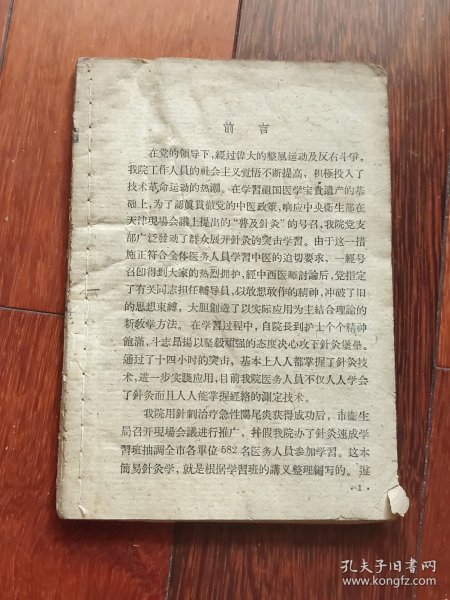 前言
在党的領导下，經过偉大的整風运动及反右斗爭，
我院工作人員的社会主义覚悟不断提高，积極投入了
技术革命运动的热潮。在学習祖国医学宝貴遺产的基
础上，为了認眞貫徹党的中医政策，响应中央衛生部在
天津現場会議上提出的“普及針灸”的号召，我院党支
部广泛發动了群众展开針灸的突击学習。由于这一措
施正符合全体医务人員学習中医的迫切要求，一經号
召即得到大家的热烈拥护，經中西医师討論后，党指定
了有关同志担任輔导員，以敢想敢作的精神，冲破了旧
的思想束縛，大胆創造了以实际应用为主結合理論的
新教学方法。在学習过程中，自院長到护士个个精神
飽滿、斗志昂揚以堅毅頑强的态度决心攻下針灸堡壘。
通过了十四小时的突击，基本上人人都掌握了針灸技
术，进一步实践应用，目前我院医务人員不仅人人学会
了針灸而且人人能掌握經絡的測定技术。
我院用針刺治疗急性闌尾炎获得成功后，市衛生
局召开現場会議进行推广、幷假我院办了針灸速成学
習班抽調全市各單位582名医务人員参加学習。这本
簡易針灸学，就是根据学習班的講义整理編写的。遑
·1·
孔夫子旧书网
www.kongfz.com